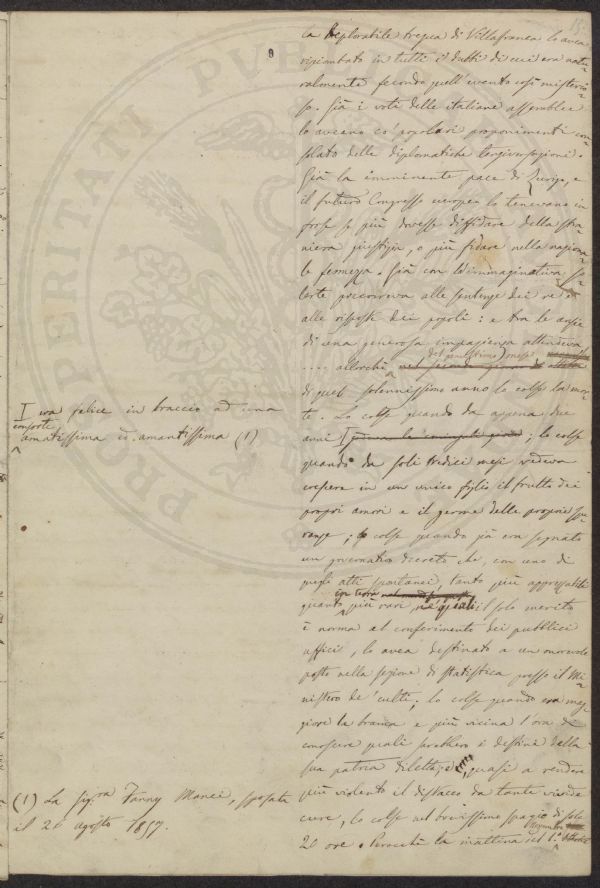 la deplorabile tregua di Villafranca lo avea
ripiombato in tutti i dubbi di cui era natu-
ralmente fecondo quell'evento così misterio-
so. Già i voti delle italiane assemblee
lo aveano co' popolari proponimenti con-
solato delle diplomatiche tergiversazioni.
Già la imminente pace di Zurigo, e
il futuro Congresso europeo lo tenevano in
forse se più dovesse diffidare della stra-
niera giustizia, o più fidare nella naziona-
le fermezza. Già con l'immaginativa so-
lerte precorreva alle sentenze dei re e
alle risposte dei popoli: e tra le ansie
di una generosa impazienza attendeva
.... allorchè
del penultimo mese
di quel solennissimo anno lo colse la mor-
te. Lo colse quando da appena due
anni
I era felice in braccio ad una
consorte
amatissima ed amantissima (1)
; lo colse
quando da soli tredici mesi vedeva
crescere in un unico figlio il frutto dei
propri amori e il germe delle proprie spe-
ranze; lo colse quando già era segnato
un governativo decreto che, con uno di
quegli atti spontanei, tanto più apprezzabili
quanto più rari, ne' quali il solo merito
è norma al conferimento dei pubblici
uffici, lo avea destinato a un onorevole
posto nella sezione di statistica presso il Mi-
nistero de' culti; lo colse quando era mag-
giore la brama e più vicina l'ora di
conoscere quali sarebbero i destini della
sua patria diletta; e, quasi a rendere
più violento il distacco da tante
cure, lo colse nel brevissimo spazio di sole
20 ore. Perocchè la mattina del 1.º
Novembre
(1) La sig.ra Fanny Manci, sposata
il 20 agosto 1857.